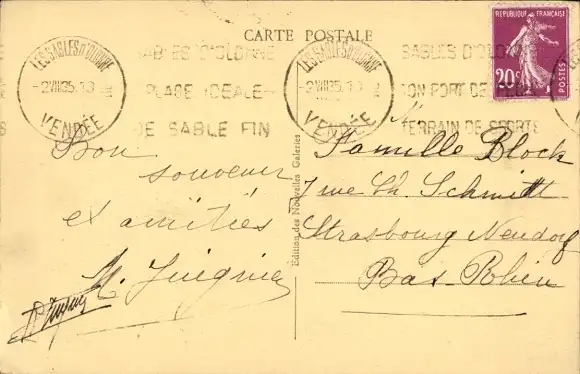 CARTE POSTALE
LES SABLES D'OLONNE
-2 VIII 35.
VENDÉE
SABLES D'OLONNE
PLAGE IDÉALE
DE SABLE FIN
LES SABLES D'OLONNE
-2 VIII 35.
VENDÉE
SABLES D'OLONNE
SON PORT DE
TERRAIN DE SPORTS
REPUBLIQUE FRANÇAISE
20c
POSTES
Bon
souvenir
et amitiés
M.
Édition des Nouvelles Galeries
M
Famille Bloch
7 rue Ch. Schmidt
Strasbourg Neudorf
Bas-Rhin